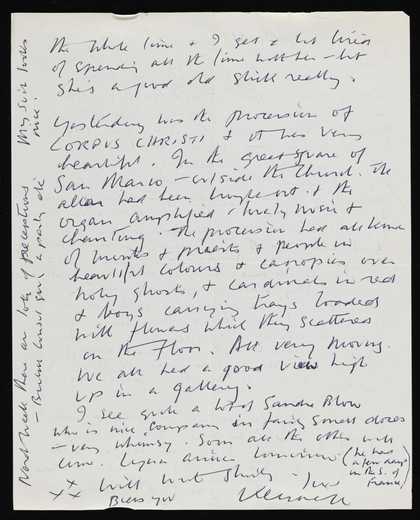 the whole time & I get a bit tired
of spending all the time with her – but
she's a good old stick really.
Yesterday was the procession of
CORPUS CHRISTI & it was very
beautiful. In the great square of
San Marco – outside the Church. The
altar had been brought out & the
organ amplified lovely music &
chanting. The procession had all kinds
of monks & priests & people in
beautiful colours & canopies over
holy ghosts, & cardinals in red
& boys carrying trays loaded
with flowers which they scattered
on the floor. All very moving.
We all had a good view high
up in a gallery.
I see quite a lot of Sandra Blow
who is nice company in fairly small doses
– very whimsy. Soon all the other will
come. arrives tomorrow (he was
a few days
in the S. of
France)
xx Will write
xx Bless you
love
Kenneth
Next week there are lots of receptions
– British Consul giving a party etc
My suit looks
nice.